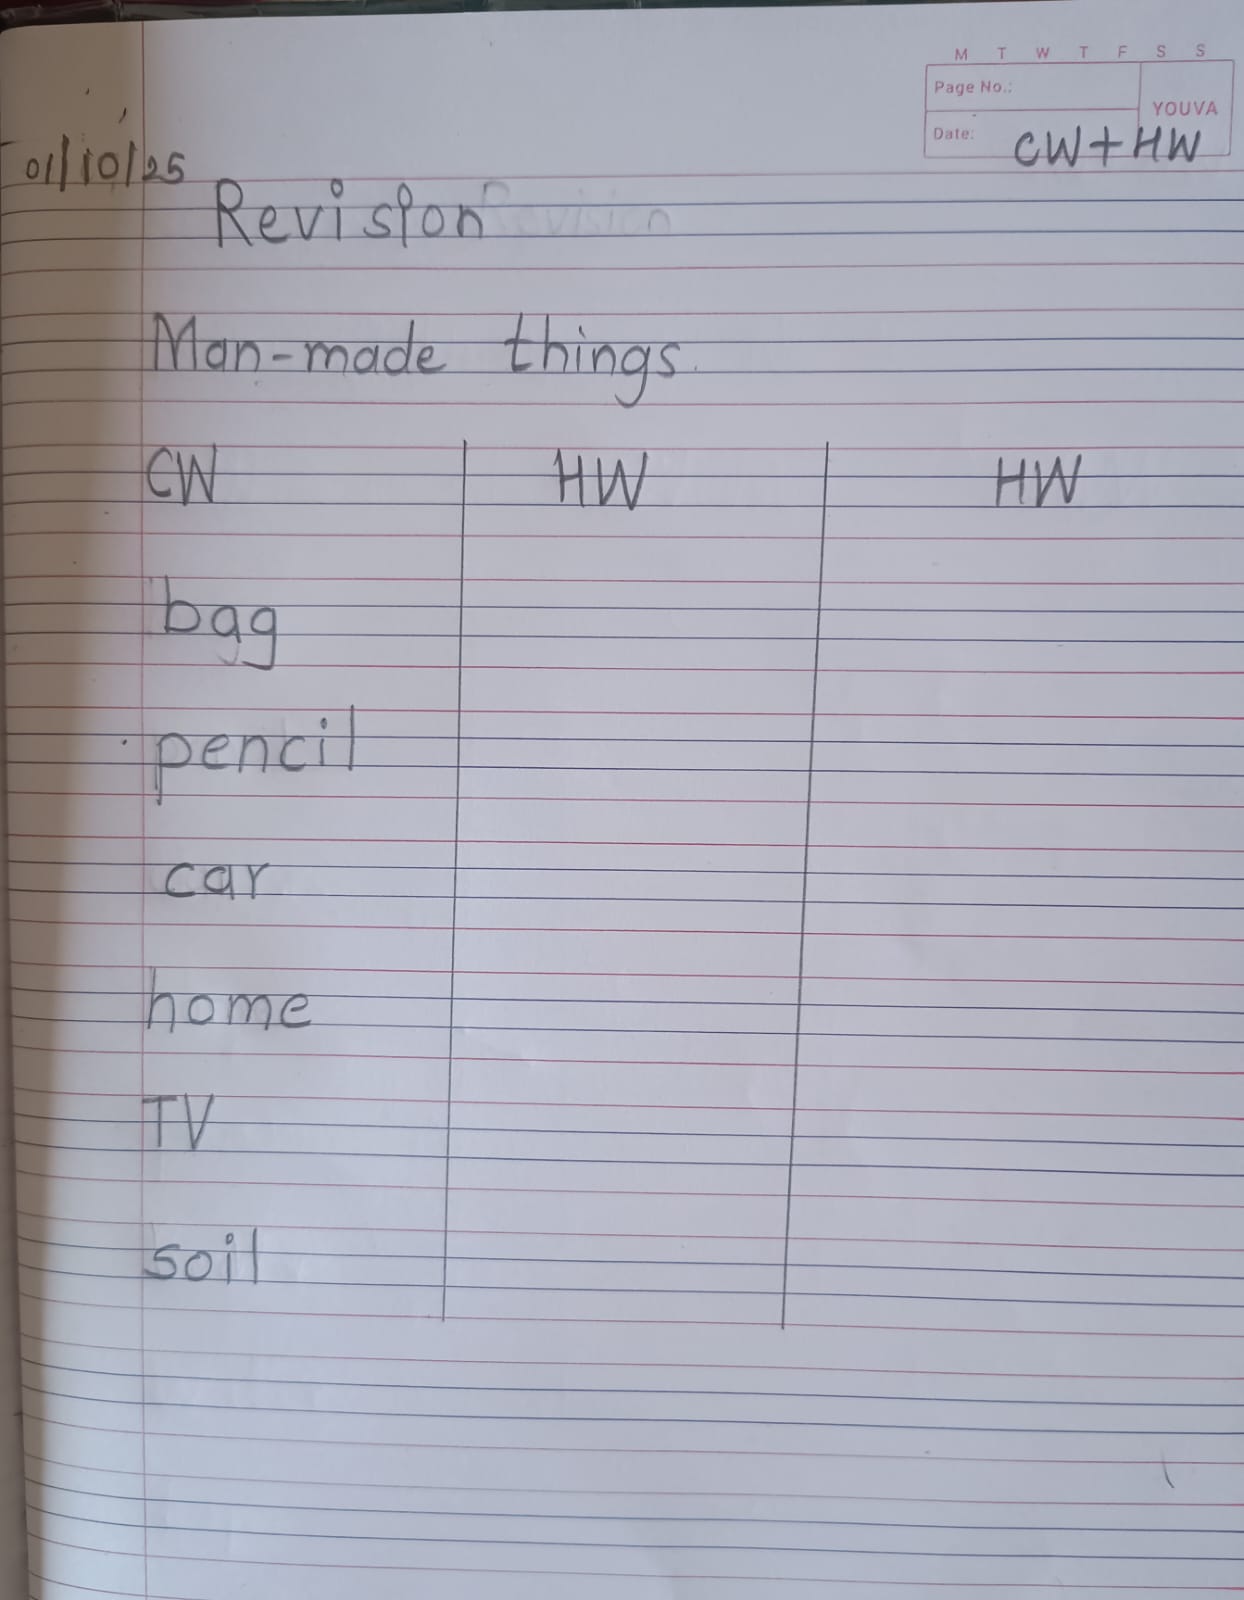 M T W T F S S
Page No.:
YOUVA
Date: CW+HW
01/10/25
Revision Revision
Man-made things
CW HW HW
bag
pencil
car
home
TV
soil